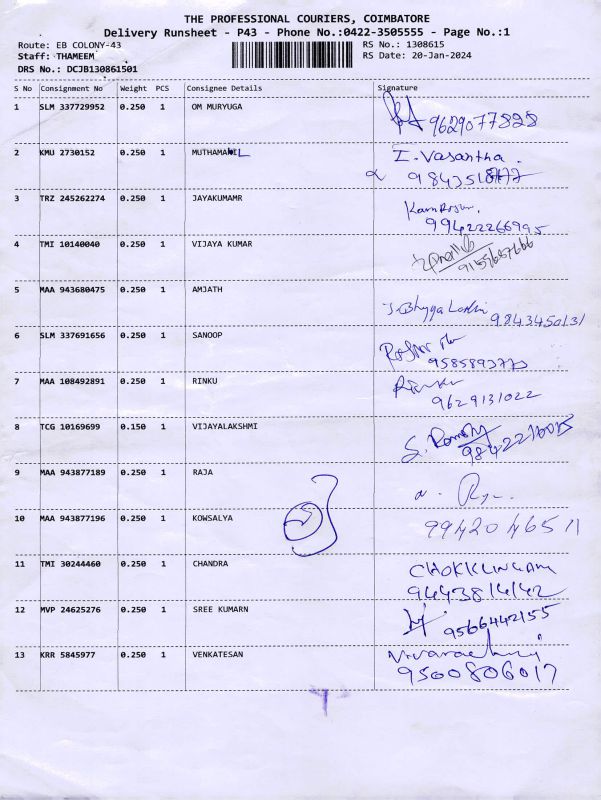 THE PROFESSIONAL COURIERS, COIMBATORE
Delivery Runsheet - P43 - Phone No.:0422-3505555 - Page No.:1
Route: EB COLONY-43 RS No.: 1308615
Staff: THAMEEM RS Date: 20-Jan-2024
DRS No.: DCJB130861501
S No Consignment No Weight PCS Consignee Details Signature
1 SLM 337729952 0.250 1 OM MURYUGA
9629077828
2 KMU 2730152 0.250 1 I. Vasantha.
3 TRZ 245262274 0.250 1 JAYAKUMAMR
99422266995
4 TMI 10140040 0.250 1 VIJAYA KUMAR
9159687666
5 MAA 943680475 0.250 1 AMJATH
9843450131
6 SLM 337691656 0.250 1 SANOOP
9585893773
7 MAA 108492891 0.250 1 RINKU
9629131022
8 TCG 10169699 0.150 1 VIJAYALAKSHMI
9 MAA 943877189 0.250 1 RAJA
10 MAA 943877196 0.250 1 KOWSALYA
9942046511
11 TMI 30244460 0.250 1 CHANDRA CHOKKLINGAM
9443814142
12 MVP 24625276 0.250 1 SREE KUMARN
9566442155
13 KRR 5845977 0.250 1 VENKATESAN
9500806017